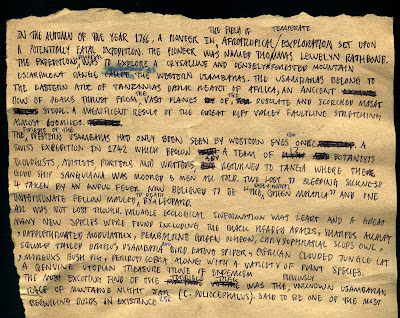 THE FIELD OF TEMPERATE
IN THE AUTUMN OF THE YEAR 1766, A PIONEER IN AFROTROPICAL EXPLORATION, SET UPON
A POTENTIALLY FATAL EXPEDITION. THE PIONEER WAS NAMED THOMAS LEWELYN RATHBONE.
THE EXPEDITION, TO EXPLORE A CRYSALLINE AND DENSELY FORESTED MOUNTAIN
ESCARPMENT RANGE CALLED THE WESTERN USAMBARAS. THE USAMBARAS BELONG TO
THE EASTERN ARC OF TANZANIAS DARKE HEART OF AFRICA, AN ANCIENT
ROW OF PEAKS THRUST FROM THE VAST PLANES OF DESOLATE AND SCORCHED MASAI
STEPPE. A MAGNIFICENT RESULT OF THE GREAT RIFT VALLEY FAULTLINE STRETCHING
ALMOST 6000 MILES.
THE WESTERN USAMBARAS HAD ONLY BEEN SEEN BY WESTERN EYES ONCE A
SWISS EXPEDITION IN 1742 WHICH A TEAM OF BOTANISTS
ZOOLOGISTS, ARTISTS PORTERS AND WRITERS RETURNED TO TANGA WHERE THE
GOOD SHIP SANGUIANA WAS MOORED 5 MEN ALL TOLD. TWO LOST TO SLEEPING SICKNESS
4 TAKEN BY AN AWFUL FEVER NOW BELIEVED TO BE THE GREEN MALARIA AND ONE
UNFORTUNATE FELLOW MAULED TO DEATH BY A LEOPARD.
ALL WAS NOT LOST THOUGH. VALUABLE ECOLOGICAL INFORMATION WAS LEARNT AND A GREAT
MANY NEW SPECIES WERE FOUND INCLUDING THE BLACK HEADED APALIS, SHARPES AKALAT
, PEMBERTON GREEN PIGEON, CHRYSOPHRASIAL SCOPS OWL,
SQUARE TAILED DRONGO, USAMBARA BIRD EATING SPIDER, CERULIAN CLOUDED JUNGLE CAT
, MOREAUS BUSH PIG, ALONG WITH A VARIETY OF PLANT SPECIES.
A GENUINE UTOPIAN TREASURE TROVE OF ENDEMISM
THE MOST EXCITING FIND OF THE TREK WAS THE PREVIOUSLY UNKNOWN USAMBARAN
RACE OF MONTANE NIGHT JAR (C. POLIOCEPHALUS). SAID TO BE ONE OF THE MOST
BEGUILING BIRDS IN EXISTANCE